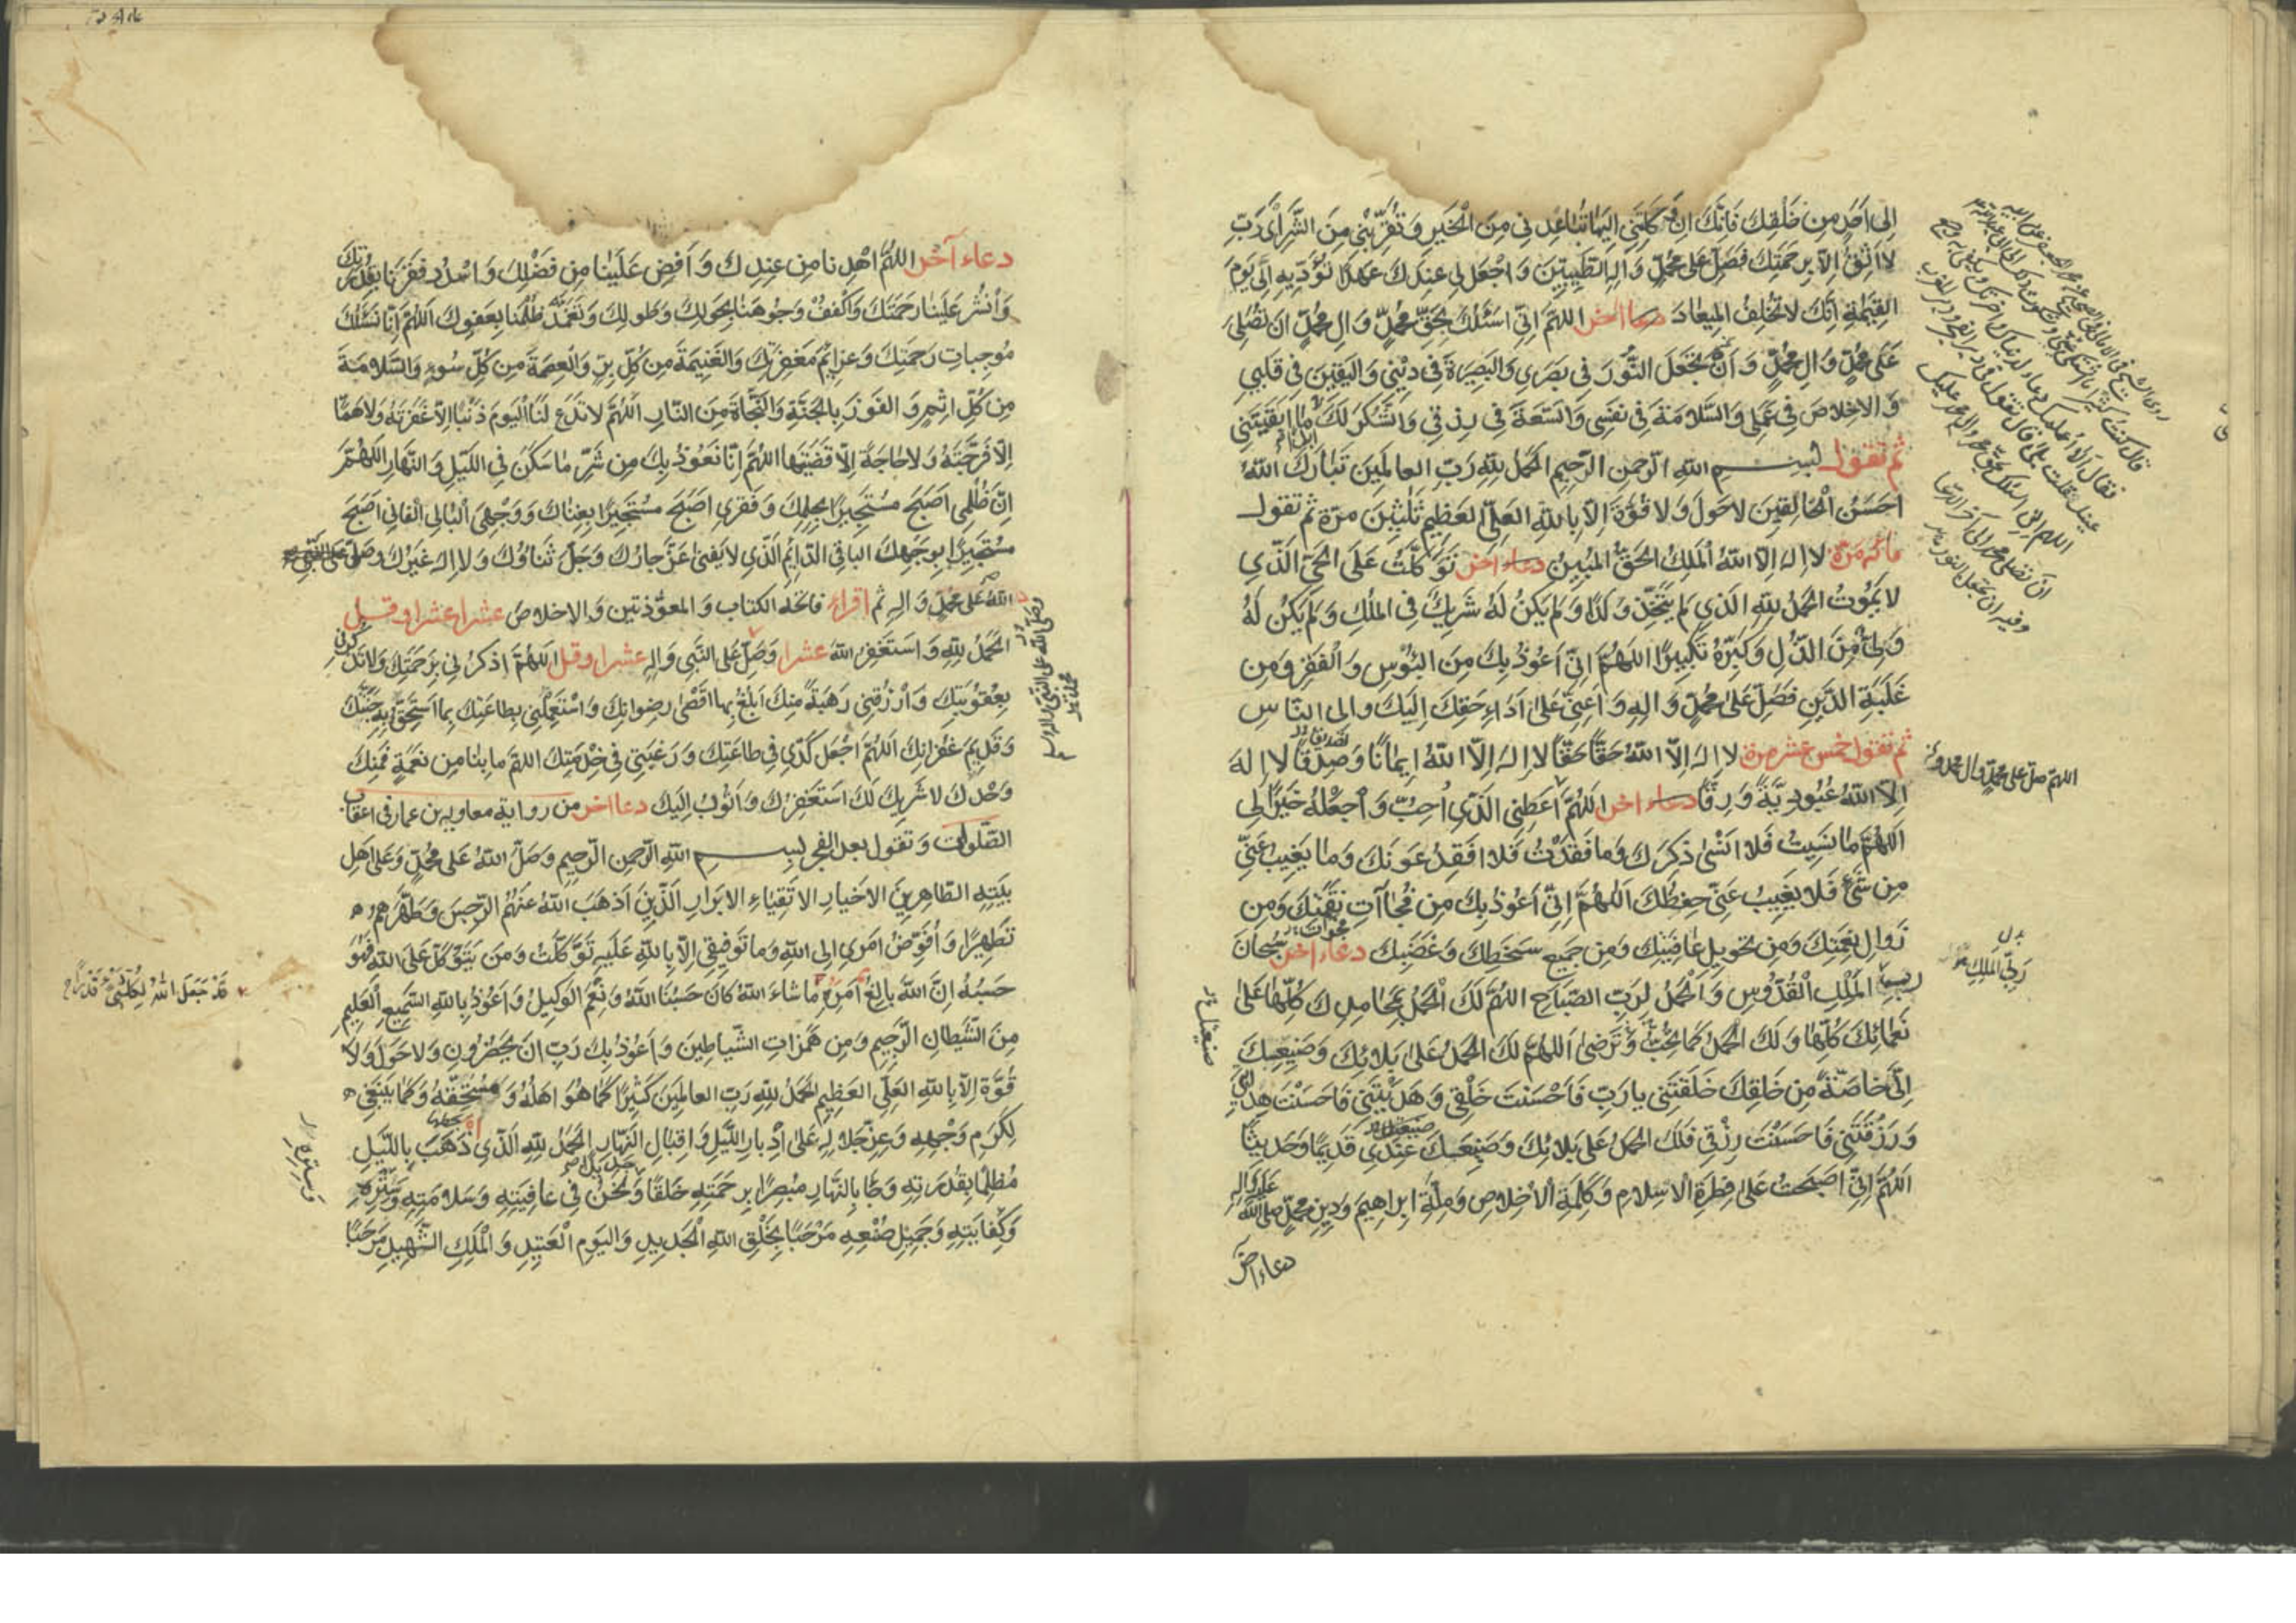 إلى أحد من خلقك فإنك إن وكلتني إليها تباعدني من الخير وتقربني من الشر أي رب
لا أثق إلا برحمتك فصل على محمد وآله الطيبين واجعل لي عندك عهدا تؤديه إلي يوم
القيمة إنك لا تخلف الميعاد دعاء آخر اللهم إني أسئلك بحق محمد وآل محمد أن تصلي
على محمد وآل محمد وأن تجعل النور في بصري والبصيرة في ديني واليقين في قلبي
والإخلاص في عملي والسلامة في نفسي والسعة في رزقي والشكر لك ما أبقيتني
ثم تقول بسم الله الرحمن الرحيم الحمد لله رب العالمين تبارك الله
أحسن الخالقين لا حول ولا قوة إلا بالله العلي العظيم ثلثين مرة ثم تقول
مائة مرة لا إله إلا الله الملك الحق المبين دعاء آخر توكلت على الحي الذي
لا يموت الحمد لله الذي لم يتخذ ولدا ولم يكن له شريك في الملك ولم يكن له
ولي من الذل وكبره تكبيرا اللهم إني أعوذ بك من البؤس والفقر ومن
غلبة الدين فصل على محمد وآله وأعني على أداء حقك إليك وإلى الناس
ثم تقول خمس عشر مرة لا إله إلا الله حقا حقا لا إله إلا الله إيمانا وصدقا لا إله
إلا الله عبودية ورقا دعاء آخر اللهم أعطني الذي أحب واجعله خيرا لي
اللهم ما نسيت فلا أنسى ذكرك وما فقدت فلا أفقد عونك وما يغيب عني
من شيء فلا يغيب عني حفظك اللهم إني أعوذ بك من فجاآت نقمتك ومن
زوال نعمتك ومن تحويل عافيتك ومن جميع سخطك وغضبك دعاء آخر سبحان
ربي الملك القدوس والحمد لرب الصباح اللهم لك الحمد بمحامدك كلها على
نعمائك كلها ولك الحمد كما تحب وترضى اللهم لك الحمد على بلائك وصنيعك
إلى خاصة من خلقك خلقتني يا رب فأحسنت خلقي وهديتني فأحسنت هدايتي
ورزقتني فأحسنت رزقي فلك الحمد على بلائك وصنيعك عندي قديما وحديثا
اللهم إني أصبحت على فطرة الإسلام وكلمة الإخلاص وملة إبراهيم ودين محمد صلى الله عليه وآله
دعاء آخر
اللهم صل على محمد وآل محمد
ربي الملك
دعاء آخر اللهم اهدنا من عندك وأفض علينا من فضلك واسدد فقرنا بقدرتك
وانشر علينا رحمتك واكفف وجوهنا بحولك وطولك وتغمد ظلمنا بعفوك اللهم إنا نسئلك
موجبات رحمتك وعزائم مغفرتك والغنيمة من كل بر والعصمة من كل سوء والسلامة
من كل إثم والفوز بالجنة والنجاة من النار اللهم لا تدع لنا اليوم ذنبا إلا غفرته ولا هما
إلا فرجته ولا حاجة إلا قضيتها اللهم إنا نعوذ بك من شر ما سكن في الليل والنهار اللهم
إن ظلمي أصبح مستجيرا بحلمك وفقري أصبح مستجيرا بغناك ووجهي البالي الفاني أصبح
مستجيرا بوجهك الباقي الدائم الذي لا يفنى عز جارك وجل ثناؤك ولا إله غيرك
الله على محمد وآله ثم اقرأ فاتحة الكتاب والمعوذتين والإخلاص عشرا عشرا وقل
الحمد لله وأستغفر الله عشرا وصل على النبي وآله عشرا وقل اللهم اذكرني برحمتك ولا تذكرني
بعقوبتك وارزقني رهبة منك أبلغ بها أقصى رضوانك واستعملني بطاعتك بما أستحق به جنتك
وقديم غفرانك اللهم اجعل كدي في طاعتك ورغبتي في خدمتك اللهم ما بنا من نعمة فمنك
وحدك لا شريك لك أستغفرك وأتوب إليك دعاء آخر من رواية معاوية بن عمار في أعقاب
الصلوات وتقول بعد الفجر بسم الله الرحمن الرحيم وصلى الله على محمد وعلى أهل
بيته الطاهرين الأخيار الأتقياء الأبرار الذين أذهب الله عنهم الرجس وطهرهم
تطهيرا وأفوض أمري إلى الله وما توفيقي إلا بالله عليه توكلت ومن يتوكل على الله فهو
حسبه إن الله بالغ أمره ما شاء الله كان حسبنا الله ونعم الوكيل وأعوذ بالله السميع العليم
من الشيطان الرجيم ومن همزات الشياطين وأعوذ بك رب أن يحضرون ولا حول ولا
قوة إلا بالله العلي العظيم الحمد لله رب العالمين كثيرا كما هو أهله ومستحقه وكما ينبغي
لكرم وجهه وعز جلاله على إدبار الليل وإقبال النهار الحمد لله الذي ذهب بالليل
مظلما بقدرته وجاء بالنهار مبصرا برحمته خلقا ونحن في عافيته وسلامته وستره
وكفايته وجميل صنعه مرحبا بخلق الله الجديد واليوم العتيد والملك الشهيد مرحبا
قد جعل الله لكل شيء قدرا